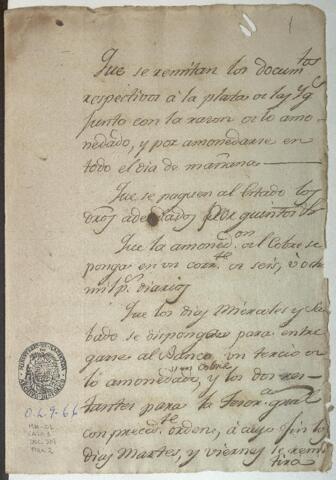 1
Que se remitan los docum.tos
respectivos á la plata de las Yg.s
junto con la razon de lo amo-
nedado, y por amonedarse en
todo el dia de mañana
Que se paguen al Estado los
dros adeudados por quintos &a
Que la amoned.on del Cobre se
ponga en un corr.te de seis, ù ocho
mil p.s diarios
Que los dias Miercoles y Sa-
bado se disponga para entre
garse al Banco un tercio de
lo amonedado, y los dos res-
y en cobre
tantes para la tesor.a gral
con preced.te orden, á cuyo fin los
dias Martes, y viernes se remi
tira
O.L. 9-66
MH-OL
CAJA 3
DOC. 204
FOLIO 2